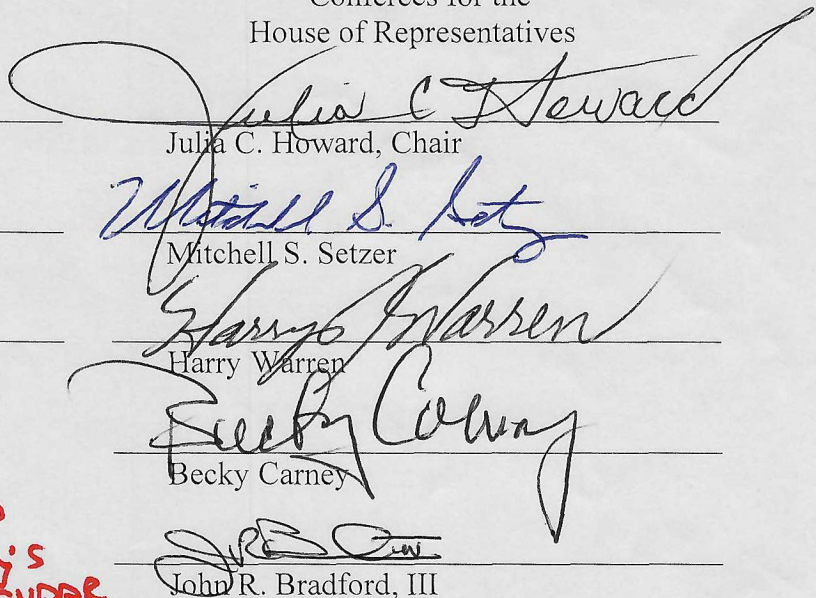 Conferees for the
House of Representatives
Julia C Howard
Julia C. Howard, Chair
Mitchell S. Setzer
Mitchell S. Setzer
Harry Warren
Harry Warren
Becky Carney
Becky Carney
John R. Bradford, III